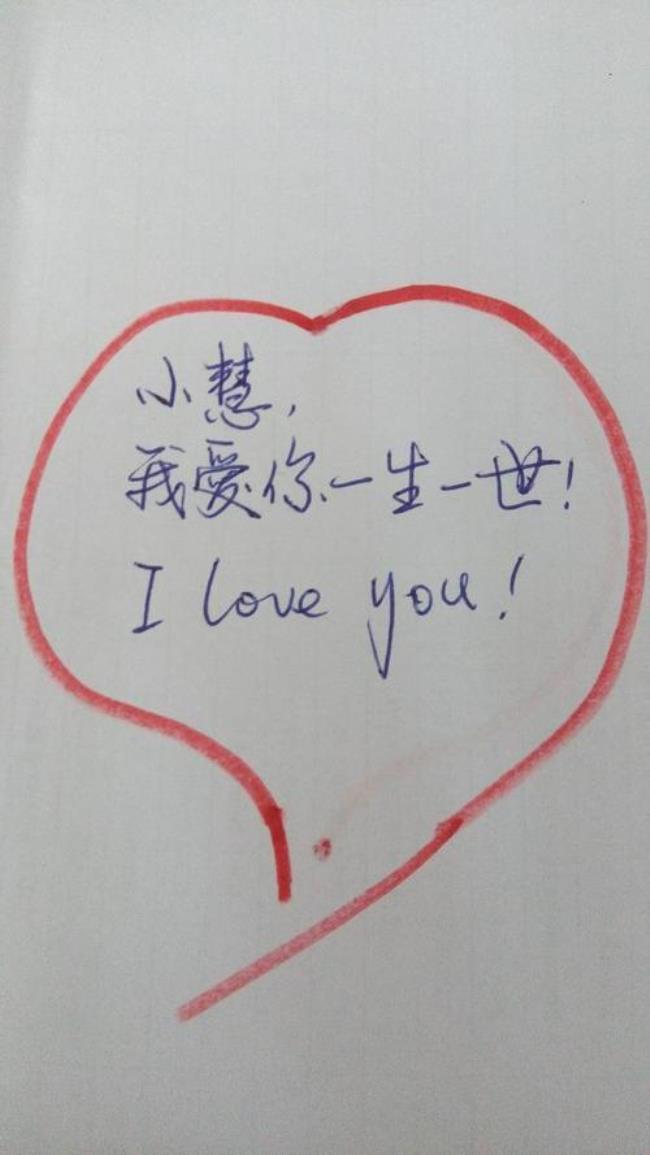 小慧，
我爱你一生一世！
I love you!